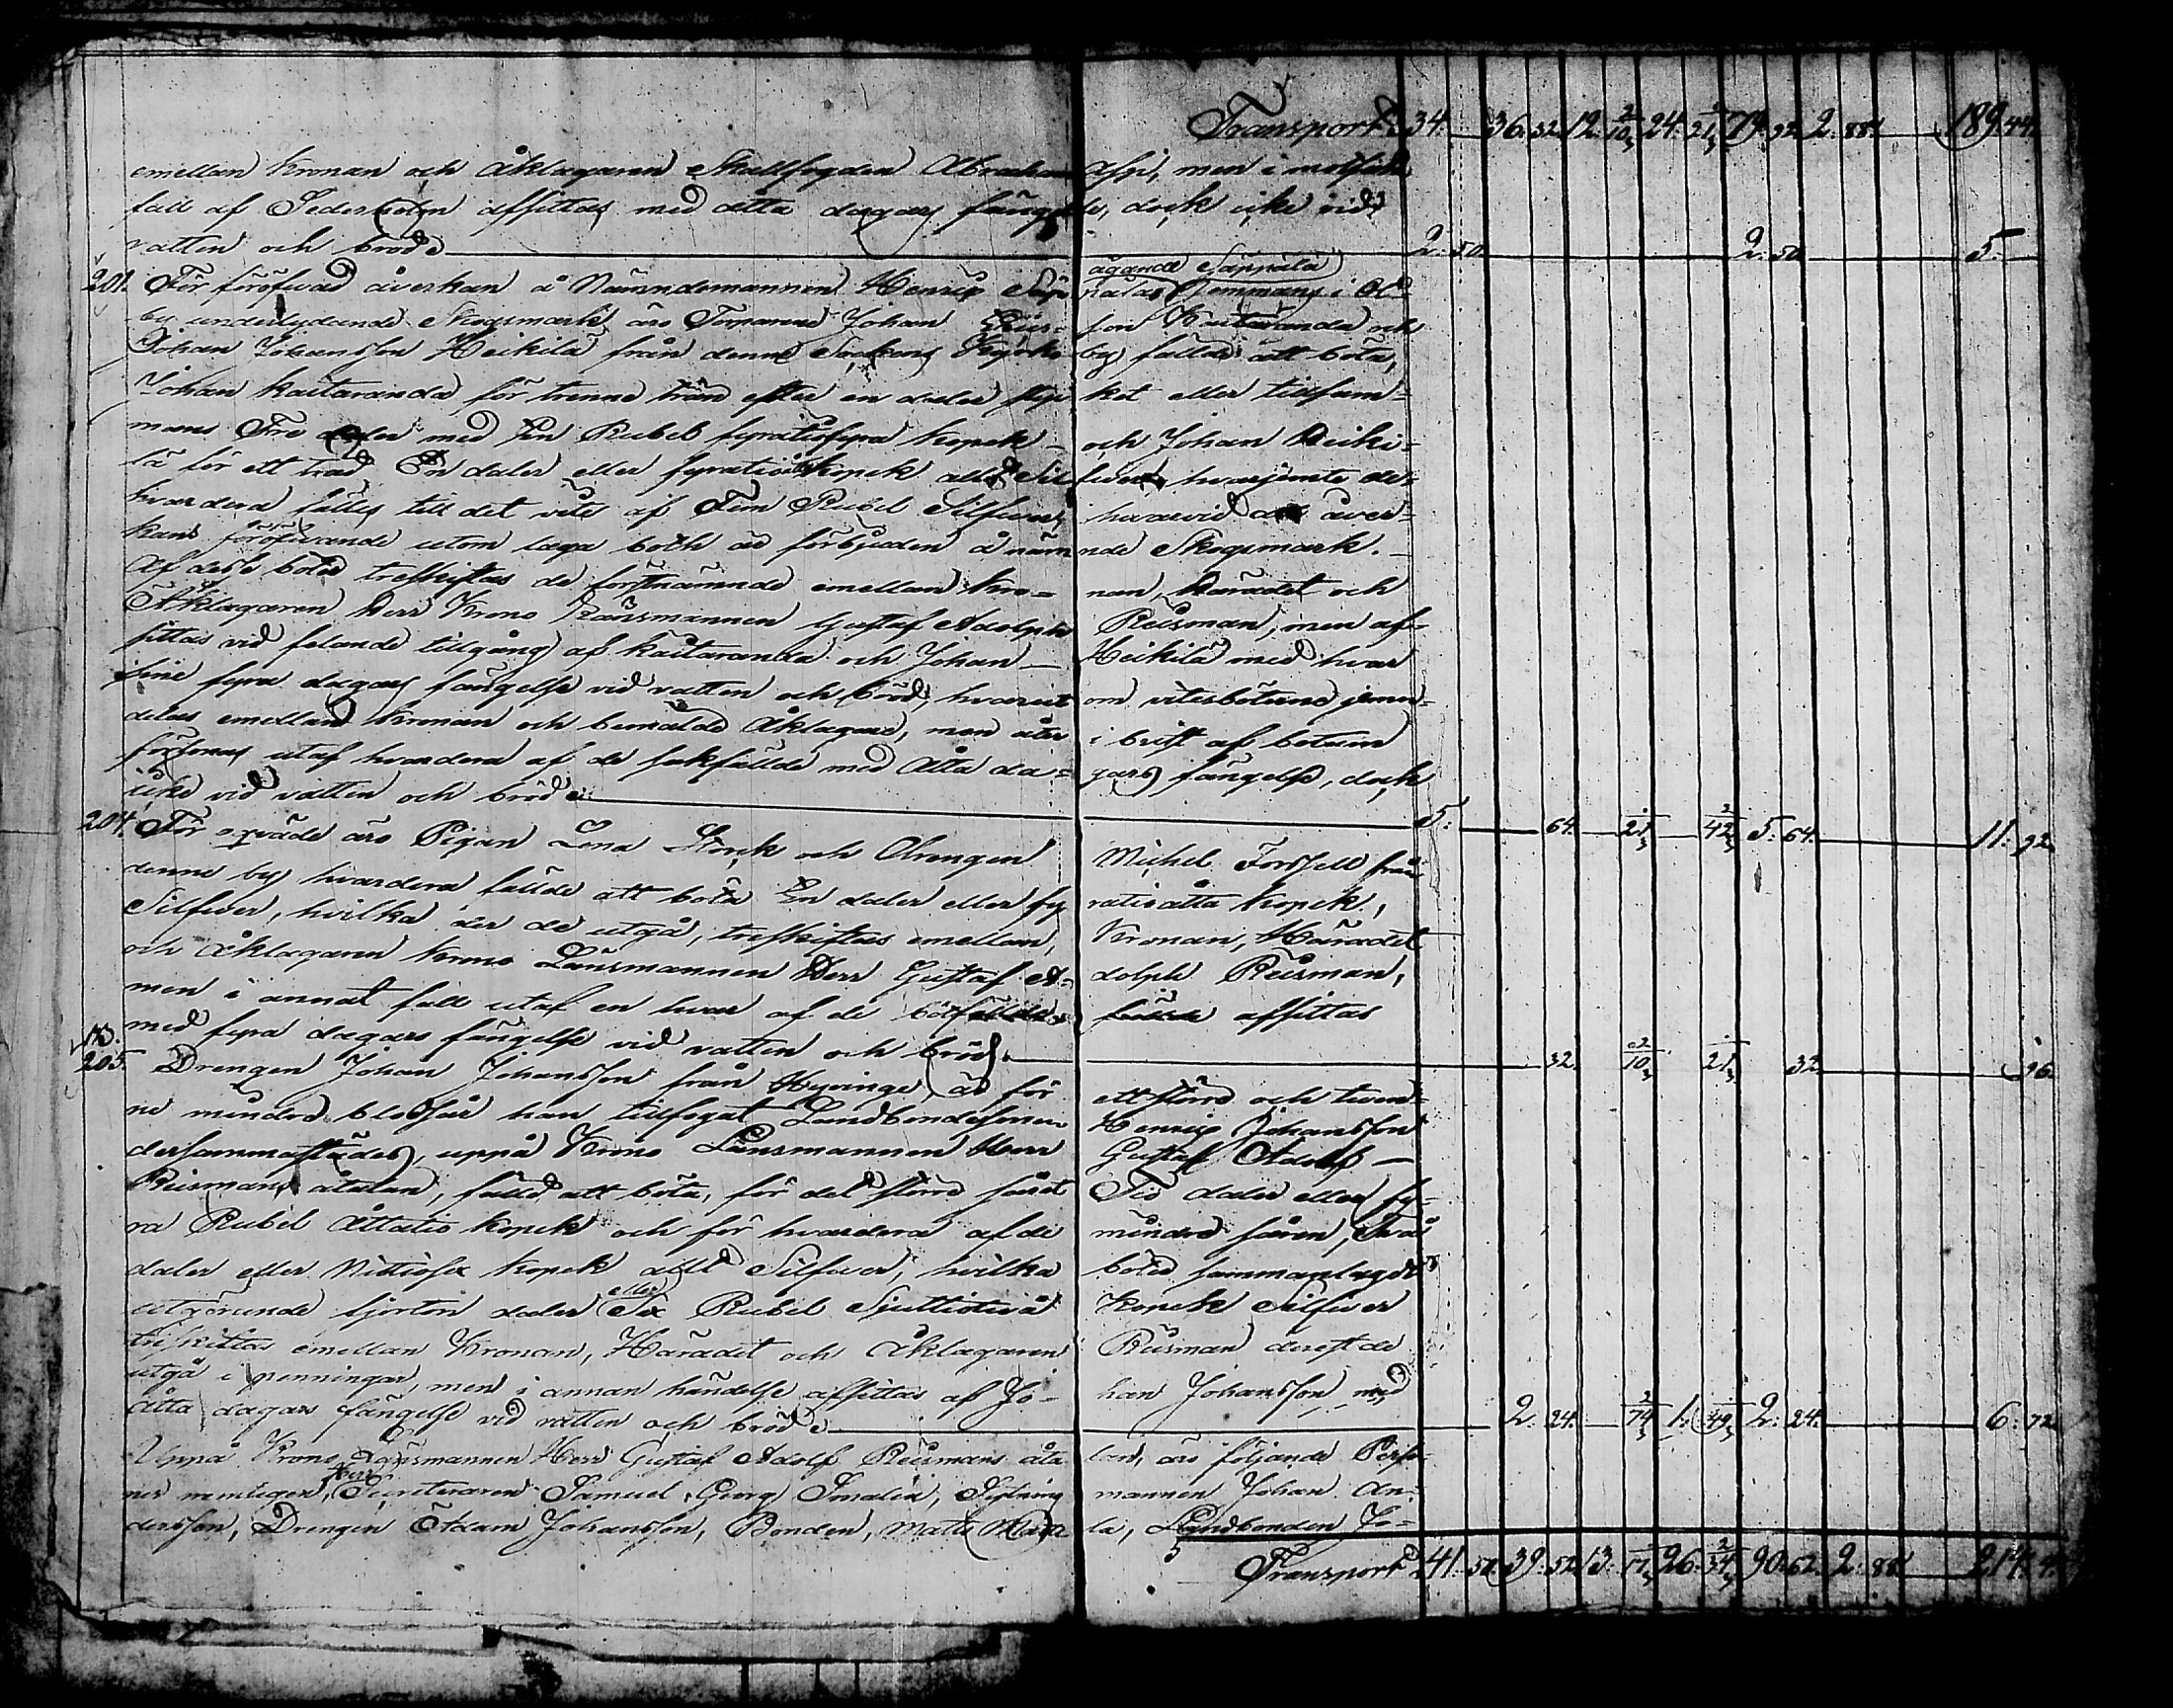 Transport 34. 36. 32. 12. 2/10,3 24. 1/21,3 79. 92. 2. 88. 189. 44.
emellan Kronan och Åklagaren Skallfogden Abraham Asp, men i motsatt
fall af Sederholm afsittas med åtta dagars fängelse, dock icke vid
vatten och bröd 2. 50. 2. 50. 5.
ägande Säppälä
201. För föröfvad åverkan å Nämndemannen Henric hemmans i
by underlydande Skogsmark äro Torparene Johan son Kaitaranda och
Johan Johansson Heikilä från denne Sockens Kyrko by fällde att böta,
Johan Kaitaranda för trenne trän efter en daler styc ket eller tillsam=
mans Tre daler med En Rubel fyratiofyra kopek och Johan Heiki=
lä för ett träd En daler eller fyratioåtta kopek allt Sil fver, hvarjemte de
hvardera fälles till det vite af Fem Rubel Silfver, hvarvid åver=
kans föröfvande utom laga both är förbjuden å näm nde Skogsmark.
Af desse böter treskiftas de förstnämnde emellan Kro= nan, Häradet och
Åklagaren Herr Krono Länsmannen Gustaf Adolph Reisman, men af=
sittas vid felande tillgång af Kaitaranda och Johan Heikilä med hvar
sine fyra dagars fängelse vid vatten och bröd, hvarut om vitesböterne jemn=
delas emellan Kronan och bemälde Åklagare, men åter i brist af botum
försonas utaf hvardera af de sakfällde med Åtta da= gars fängelse, dock
icke vid vatten och bröd 5. 64. 1/21,3 2/42,3 5. 64. 11. 92.
204. För qväde äro Pigan Lena Storck och Drengen Michel Forssell från
denne by hvardera fällde att böta En daler eller fy ratioåtta kopek,
Silfver, hvilka der de utgå, treskiftas emellan, Kronan, Häradet
och Åklagaren Krono Länsmannen Herr Gustaf A= dolph Reisman,
men i annat fall utaf en hvar af de bötfällde afsittas
med fyra dagars fängelse vid vatten och bröd. 32. 2/10,3 1/21,3 32. 96.
205. Drengen Johan Johansson från Hyvinge, är för ett större och tven=
ne mindre blodsår han tillfogat Landbondesonen Henric Johansson
dersammastädes, uppå Krono Länsmannen Herr Gustaf Adolf
Reismans åtalan, fälld att böta, för det större såret Tio daler eller fy=
ra Rubel Åttatio kopek och för hvardera af de mindre såren, Två
daler eller Nittiosex kopek allt Silfver, hvilka böter sammanlagdt
eller
utgörande fjorton daler Sex Rubel Sjuttiotvå kopek Silfver
treskiftas emellan Kronan, Häradet och Åklagaren Reisman derest de
utgå i penningar, men i annan händelse afsittas af Jo= han Johansson med
åtta dagars fängelse vid vatten och bröd 2. 24. 2/74,3 1. 1/49,3 2. 24. 6. 72.
Uppå Krono Länsmannen Herr Gustaf Adolf Reismans åta lan, äro följande Perso=
Herr
ner nemligen, Samuel Georg Smalén, mannen Johan An=
dersson, Drengen Adam Johansson, Bonden, Matts la, Landbonden Jo=
Transport 41. 50. 39. 52. 13. 1/17,3 26. 2/34,3 90. 62. 2. 88. 214. 4.